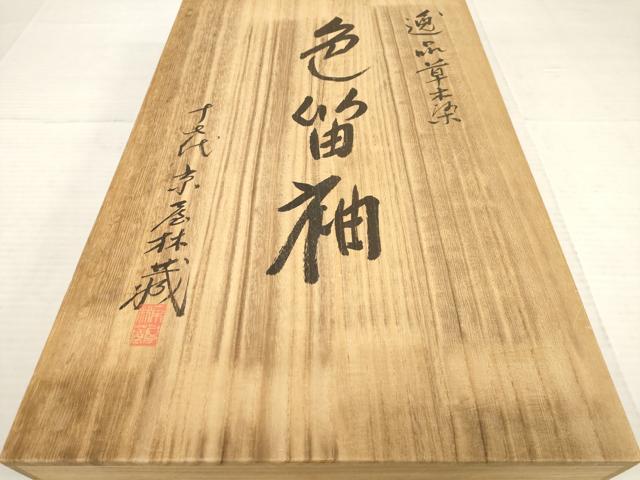 逸品草木染
色留袖
十七代京屋林蔵